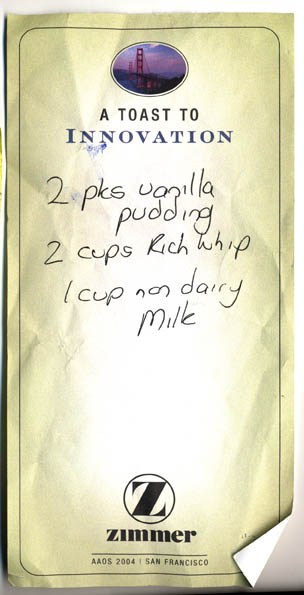 A TOAST TO
INNOVATION
2 pks vanilla
pudding
2 cups Rich whip
1 cup non dairy
Milk
Z
zimmer
AAOS 2004 | SAN FRANCISCO